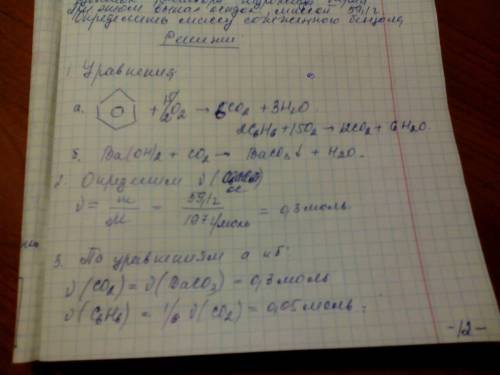 массой 59,1 г.
Определить массу сожженного бензола
Решение
1. Уравнения
а. + 15/2 O₂ → 6CO₂ + 3H₂O.
2C₆H₆ + 15O₂ → 12CO₂ + 6H₂O.
б. Ba(OH)₂ + CO₂ → BaCO₃↓ + H₂O.
2. Определяем ν (
ос.
ν = m/M = 59,1г / 197г/моль = 0,3 моль
3. По уравнениям а и б
ν (CO₂) = ν (BaCO₃) = 0,3 моль
ν (C₆H₆) = 1/6 ν (CO₂) = 0,05 моль
-12-